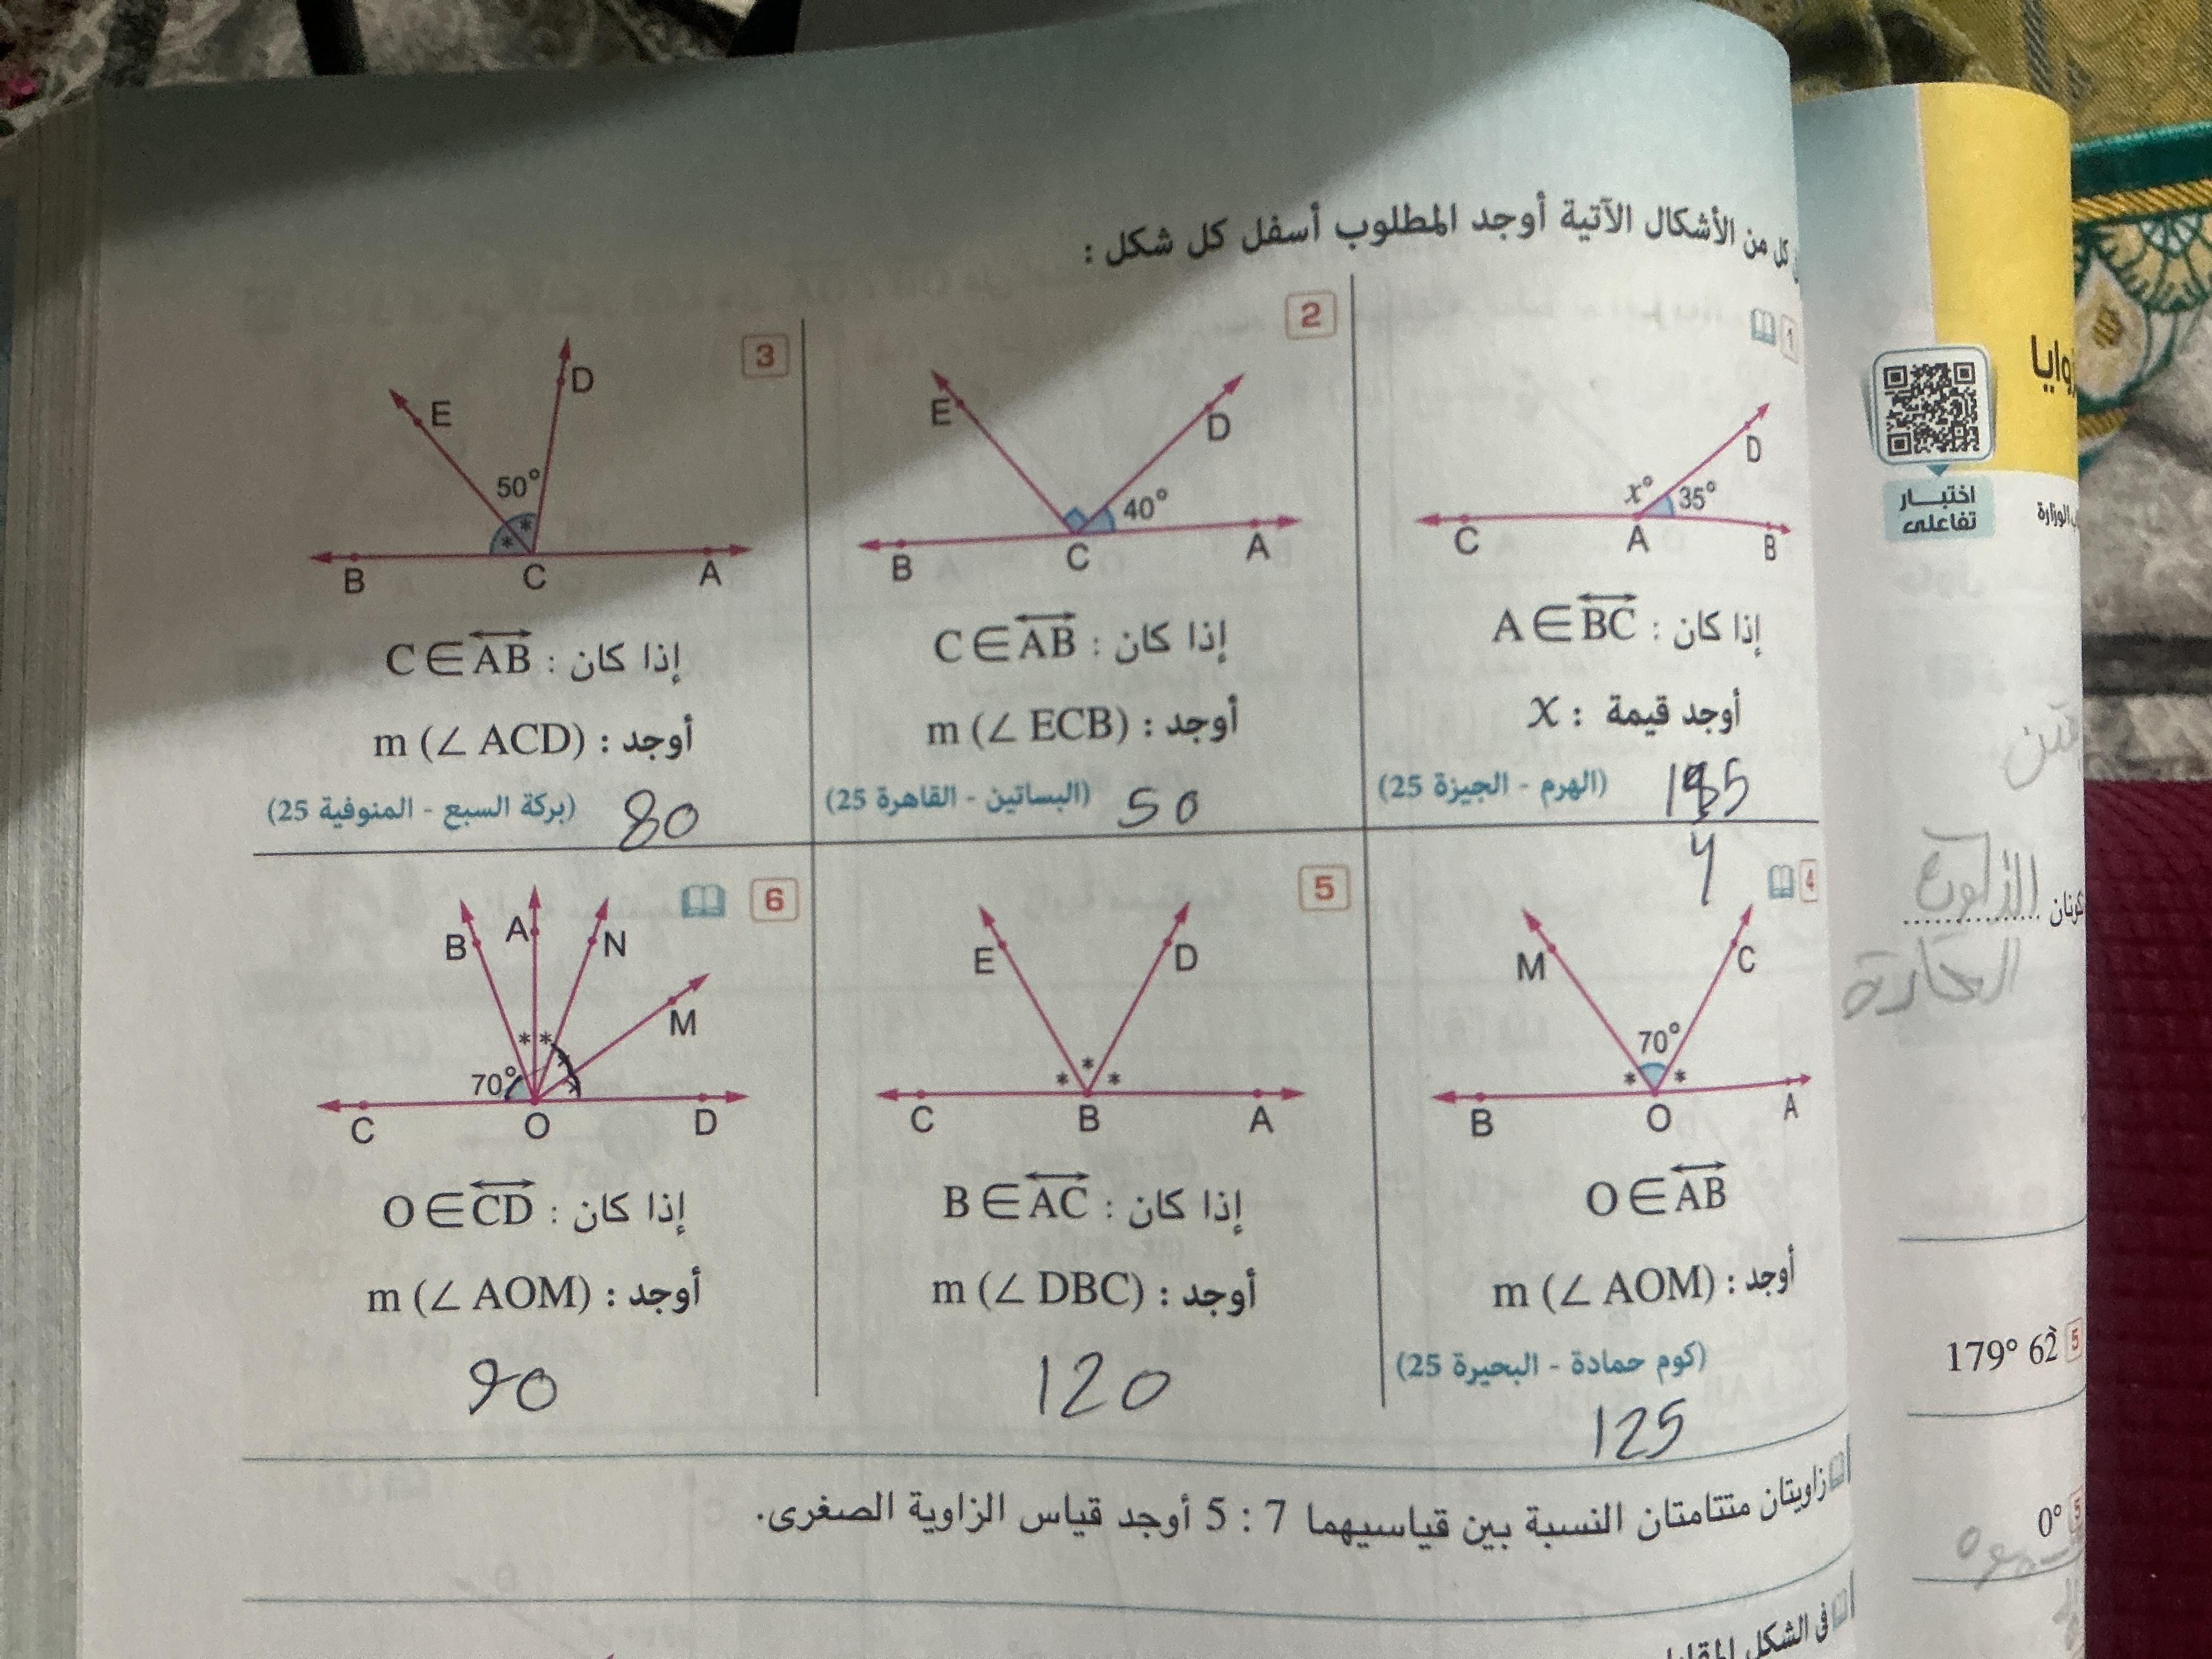 كل من الأشكال الآتية أوجد المطلوب أسفل كل شكل :
1
D
x° 35°
C A B
إذا كان : A ∈ BC
أوجد قيمة : x
(الهرم - الجيزة 25)
2
E D
40°
B C A
إذا كان : C ∈ AB
أوجد : m (∠ ECB)
(البساتين - القاهرة 25) 50
3
E D
50°
* *
B C A
إذا كان : C ∈ AB
أوجد : m (∠ ACD)
(بركة السبع - المنوفية 25) 80
4
M C
70°
* *
B O A
O ∈ AB
أوجد : m (∠ AOM)
(كوم حمادة - البحيرة 25)
125
5
E D
* * *
C B A
إذا كان : B ∈ AC
أوجد : m (∠ DBC)
120
6
B A N
M
* *
70°
C O D
إذا كان : O ∈ CD
أوجد : m (∠ AOM)
90
زاويتان متتامتان النسبة بين قياسيهما 7 : 5 أوجد قياس الزاوية الصغرى.
فى الشكل المقابل
اختبار
تفاعلى
الحادة
5 179° 62
5 0°